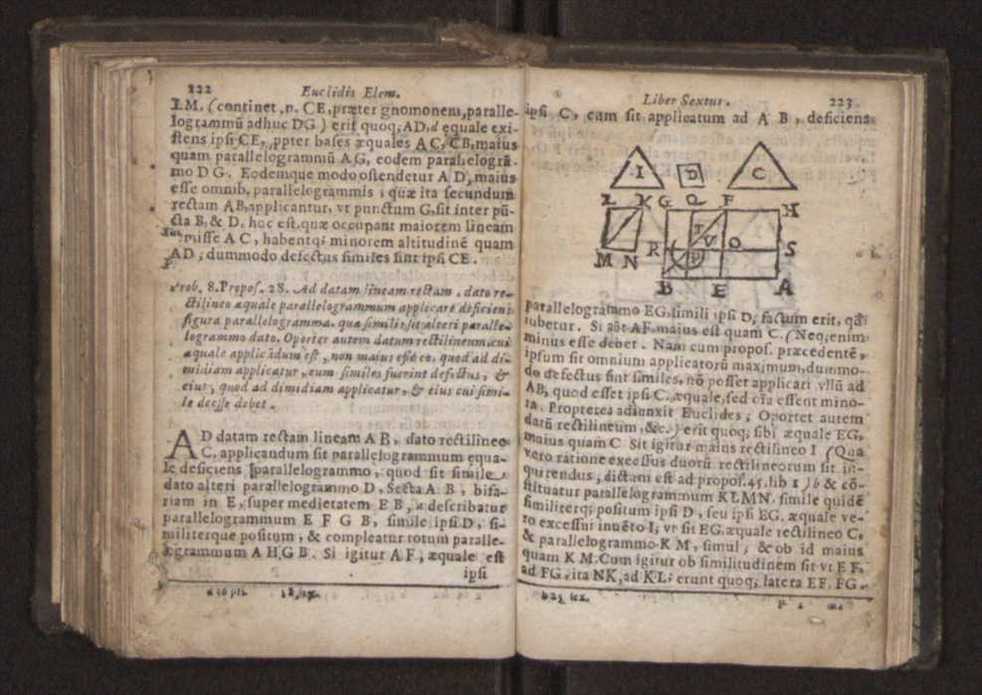 222 Euclidis Elem.
I M. (continet, n. CE, præter gnomonem, paralle-
logrammũ adhuc DG) erit quoq; AD, d equale exi-
stens ipsi CE, ppter bases æquales AC, CB, maius
quam parallelogrammũ AG, eodem parallelogrã-
mo DG. Eodemque modo ostendetur AD, maius
esse omnib. parallelogrammis, quæ ita secundum
rectam AB, applicantur, vt punctum G, sit inter pũ-
cta B, & D, hoc est, quæ occupant maiorem lineam
misse AC, habentq; minorem altitudinẽ quam
AD, dummodo defectus similes sint ipsi CE.
Prob. 8. Propos. 28. Ad datam lineam rectam, dato re-
ctilineo æquale parallelogrammum applicare deficiens
figura parallelogramma, quæ similis sit alteri paralle-
logrammo dato. Oportet autem datum rectilineum, cui
æquale applicãdum est, non maius esse eo, quod ad di-
midiam applicatur, cum similes fuerint defectus, &
eius, quod ad dimidiam applicatur, & eius cui simi-
le deesse debet.
AD datam rectam lineam AB, dato rectilineo
C, applicandum sit parallelogrammum equa-
le deficiens parallelogrammo, quod sit simile
dato alteri parallelogrammo D. Secta AB, bifa-
riam in E, super medietatem EB, a describatur
parallelogrammum EFGB, simile ipsi D, si-
militerque positum, & compleatur totum paralle-
logrammum AHGB. Si igitur AF, æquale est
ipsi
a 10 pri. 18, sex.
Liber Sextus. 223
ipsi C, cum sit applicatum ad AB, deficiens
I D C
L K G Q F H
T V O
M N R P S
B E A
parallelogrammo EG, simili ipsi D, factum erit, qđ
iubetur. Si aũt AF, maius est quam C. (Neq; enim
minus esse debet. Nam cum propos. præcedente,
ipsum sit omnium applicatorũ maximum, dummo-
do defectus sint similes, nõ posset applicari vllũ ad
AB, quod esset ipsi C, æquale, sed oĩa essent mino-
ra. Propterea adiunxit Euclides, Oportet autem
datũ rectilineum, &c.) erit quoq; sibi æquale EG,
maius quam C. Sit igitur maius rectilineo I (Qua
vero ratione excessus duorũ rectilineorum sit in-
quirendus, dictum est ad propos. 45. lib 1) b & cõ-
stituatur parallelogrammum KLMN, simile quidẽ
similiterq; positum ipsi D, seu ipsi EG, æquale ve-
ro excessui inuẽto I, vt sit EG, æquale rectilineo C,
& parallelogrammo KM, simul, & ob id maius
quam KM. Cum igitur ob similitudinem sit vt EF,
ad FG, ita NK, ad KL: erunt quoq; latera EF, FG
b 25 sex.